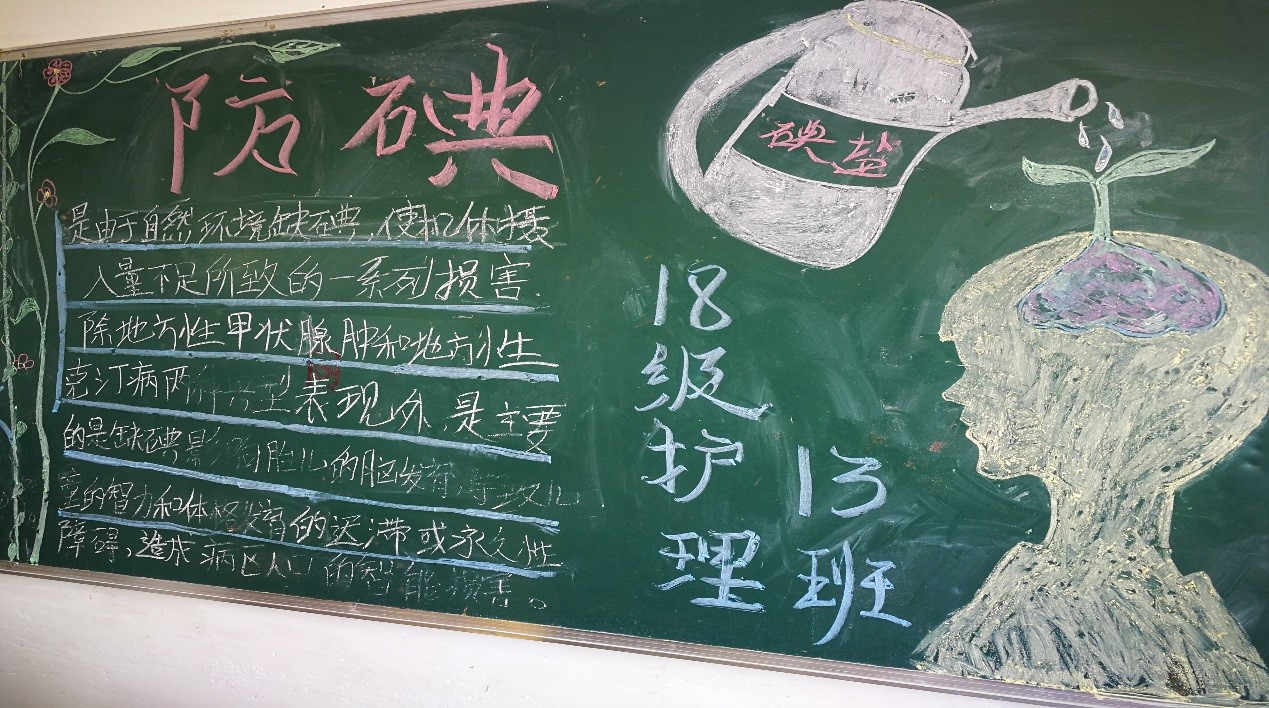 防碘
是由于自然环境缺碘，使机体摄
入量不足所致的一系列损害.
除地方性甲状腺肿和地方性
克汀病两种典型表现外，是主要
的是缺碘影响胎儿的脑发育，导致儿
童的智力和体格发育的迟滞或永久性
障碍，造成病区人口的智能损害。
碘盐
18级护理
13班